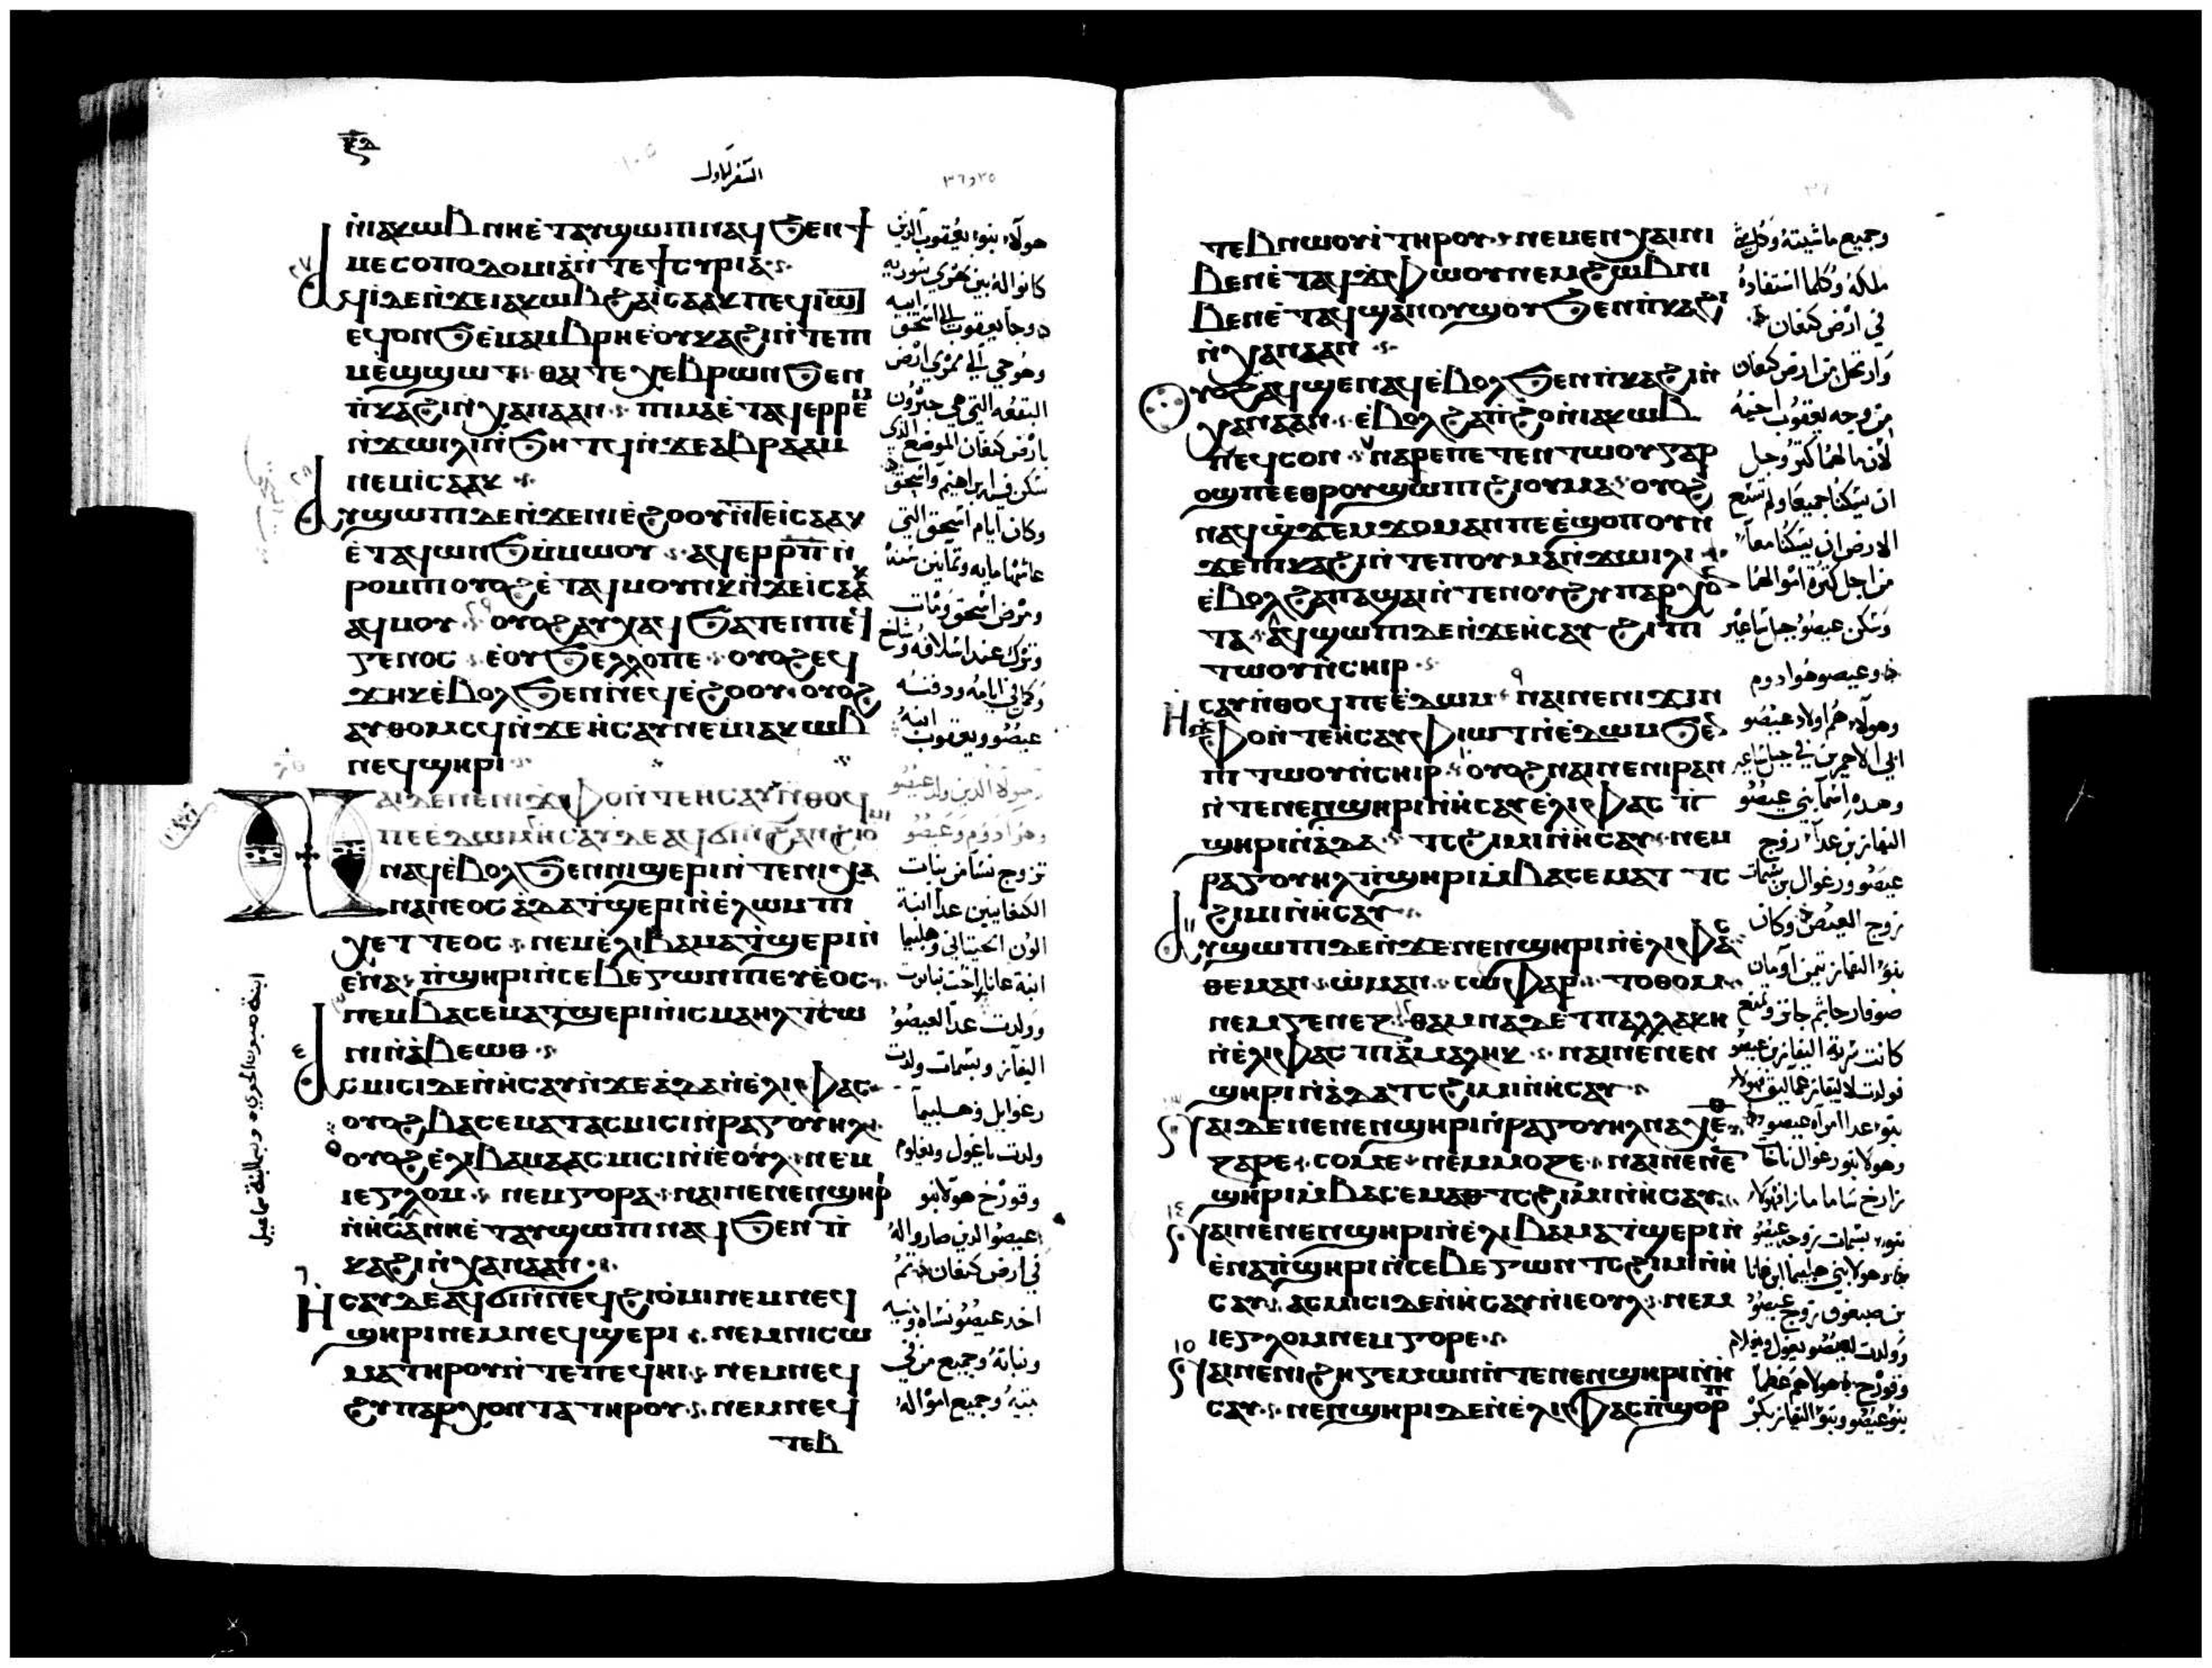 السفر الاول
ⲛ̀ⲓⲁⲕⲱⲃ ⲛⲏⲉ̀ⲧⲁⲩϣⲱⲡⲓ ⲛⲁϥ ϧⲉⲛ ϯ
ⲙⲉⲥⲟⲡⲟⲇⲟⲙⲓⲁ̀ ⲛ̀ⲧⲉ ϯⲥⲩⲣⲓⲁ̀
ⲁϥⲓ̀ ⲇⲉ ⲛ̀ϫⲉ ⲓⲁⲕⲱⲃ ϩⲁ ⲓ̀ⲥⲁⲁⲕ ⲡⲉϥⲓⲱⲧ
ⲉϥⲟⲛϧ ⲉ̀ⲙⲁⲙⲃⲣⲏ ⲉ̀ⲟⲩⲕⲁϩⲓ ⲛ̀ⲧⲉ ⲡⲓ
ⲙⲉϣϣⲱϯ ⲑⲁⲧⲉ ⲭⲉⲃⲣⲱⲛ ϧⲉⲛ
ⲡ̀ⲕⲁϩⲓ ⲛ̀ⲭⲁⲛⲁⲁⲛ ⲡⲓⲙⲁ ⲉ̀ⲧⲁϥⲉⲣⲣⲉⲙ
ⲛ̀ϫⲱⲓⲗⲓ ⲛ̀ϧⲏⲧϥ ⲛ̀ϫⲉ ⲁⲃⲣⲁⲁⲙ
ⲛⲉⲙ ⲓⲥⲁⲁⲕ
ⲁⲩϣⲱⲡⲓ ⲇⲉ ⲛ̀ϫⲉ ⲛⲓⲉ̀ϩⲟⲟⲩ ⲛ̀ⲧⲉ ⲓⲥⲁⲁⲕ
ⲉ̀ⲧⲁϥⲱⲛϧ ⲙ̀ⲙⲱⲟⲩ ⲁϥⲉⲣ ⲣⲡ ⲛ̀
ⲣⲟⲙⲡⲓ ⲟⲩⲟϩ ⲉ̀ⲧⲁϥⲙⲟⲩⲛⲕ ⲛ̀ϫⲉ ⲓⲥⲁⲁⲕ
ⲁϥⲙⲟⲩ ⲟⲩⲟϩ ⲁⲩⲭⲁϥ ϧⲁⲧⲉⲛ ⲡⲉϥ
ⲅⲉⲛⲟⲥ ⲉ̀ⲟⲩϧⲉⲗⲗⲟ ⲡⲉ ⲟⲩⲟϩ ⲉϥ
ϫⲏⲕ ⲉ̀ⲃⲟⲗ ϧⲉⲛ ⲛⲉϥⲉ̀ϩⲟⲟⲩ ⲟⲩⲟϩ
ⲁⲩⲑⲟⲙⲥϥ ⲛ̀ϫⲉ ⲏ̀ⲥⲁⲩ ⲛⲉⲙ ⲓⲁⲕⲱⲃ
ⲛⲉϥϣⲏⲣⲓ
ⲛⲁⲓ ⲇⲉ ⲛⲉ ⲛⲓϫⲫⲟ ⲛ̀ⲧⲉ ⲏⲥⲁⲩ ⲛ̀ⲑⲟϥ
ⲡⲉ ⲉ̀ⲇⲱⲙ ⲏ̀ⲥⲁⲩ ⲇⲉ ⲁϥϭⲓ ⲛ̀ϩⲁⲛϩⲓⲟⲙⲓ
ⲛⲁϥ ⲉ̀ⲃⲟⲗ ϧⲉⲛ ⲛⲓϣⲉⲣⲓ ⲛ̀ⲧⲉ ⲛⲓⲭⲁ
ⲛⲁⲛⲉⲟⲥ ⲁ̀ⲇⲁ ⲧ̀ϣⲉⲣⲓ ⲛ̀ⲉ̀ⲗⲱⲙ ⲡⲓ
ⲭⲉⲧⲧⲉⲟⲥ ⲛⲉⲙ ⲉ̀ⲗⲓⲃⲁⲙⲁ ⲧ̀ϣⲉⲣⲓ ⲛ̀
ⲉ̀ⲛⲁ ⲡ̀ϣⲏⲣⲓ ⲛ̀ⲥⲉⲃⲉⲅⲱⲛ ⲡⲓⲉⲩⲉ̀ⲟⲥ
ⲛⲉⲙ ⲃⲁⲥⲉⲙⲁ ⲧϣⲉⲣⲓ ⲛ̀ⲓⲥⲙⲁⲏⲗ ⲧ̀ⲥⲱ
ⲛⲓ ⲛ̀ⲁ̀ⲃⲉⲱⲑ
ⲁⲥⲙⲓⲥⲓ ⲇⲉ ⲛ̀ⲏ̀ⲥⲁⲩ ⲛ̀ϫⲉ ⲁ̀ⲇⲁ ⲛ̀ⲉ̀ⲗⲓⲫⲁⲥ
ⲟⲩⲟϩ ⲃⲁⲥⲉⲙⲁⲧ ⲁⲥⲙⲓⲥⲓ ⲛ̀ⲣⲁⲅⲟⲩⲏⲗ
ⲟⲩⲟϩ ⲉ̀ⲗⲓⲃⲁⲙⲁ ⲁⲥⲙⲓⲥⲓ ⲛ̀ⲓⲉⲟⲩⲗ ⲛⲉⲙ
ⲓⲉⲅⲗⲟⲙ ⲛⲉⲙ ⲅⲟⲣⲁ ⲛⲁⲓ ⲛⲉ ⲛⲉⲛϣⲏⲣⲓ
ⲛ̀ⲏ̀ⲥⲁⲩ ⲛⲏⲉ̀ⲧⲁⲩϣⲱⲡⲓ ⲛⲁϥ ϧⲉⲛ ⲡ̀
ⲕⲁϩⲓ ⲛ̀ⲭⲁⲛⲁⲁⲛ
ⲏⲥⲁⲩ ⲇⲉ ⲁϥϭⲓ ⲛ̀ⲛⲉϥϩⲓⲟ̀ⲙⲓ ⲛⲉⲙ ⲛⲉϥ
ϣⲏⲣⲓ ⲛⲉⲙ ⲛⲉϥϣⲉⲣⲓ ⲛⲉⲙ ⲛⲓⲥⲱ
ⲙⲁ ⲧⲏⲣⲟⲩ ⲛ̀ⲧⲉ ⲡⲉϥⲏⲓ ⲛⲉⲙ ⲛⲉϥ
ϩⲩⲡⲁⲣⲭⲟⲛⲧⲁ ⲧⲏⲣⲟⲩ ⲛⲉⲙ ⲛⲉϥ
ⲧⲉⲃ
هولاء بنو يعقوب الذين
كانوا له بين نهري سورية
وجا يعقوب الى اسحق ابيه
وهو حي الى ممري ارض
البقعه التي هي حبرون
بارض كنعان الموضع الذي
سكن فيه ابراهيم واسحق
وكان ايام اسحق التي
عاشها مايه وثمانين سنه
ومرض اسحق ومات
وترك عند اسلافه وشاخ
وكمل في ايامه ودفنه
عيصو ويعقوب ابنيه
وهولاء الذين ولد عيصو
وهو ادوم وعيصو
تزوج نسا من بنات
الكنعانيين عدا ابنة
الون الحيتاني وهليبا
وولدت عدا لعيصو
اليفاز وبسمات ولدت
رغوايل وهليبما
ولدت ياعول ويغلوم
وقورخ هولاء بنو
عيصو الذين صاروا له
في ارض كنعان ثم
اخذ عيصو نساه وبنيه
وبناته وجميع من في
بيته وجميع امواله
ⲧⲉⲃⲛⲱⲟⲩⲓ̀ ⲧⲏⲣⲟⲩ ⲛⲉⲙ ⲉⲛⲭⲁⲓ ⲛⲓ
ⲃⲉⲛ ⲉ̀ⲧⲁϥϫ̀ⲫⲱⲟⲩ ⲛⲉⲙ ϩⲱⲃ ⲛⲓ
ⲃⲉⲛ ⲉ̀ⲧⲁϥϣⲁⲡⲟⲩ ϣⲟⲩ ϧⲉⲛ ⲡ̀ⲕⲁϩⲓ
ⲛ̀ⲭⲁⲛⲁⲁⲛ
ⲟⲩⲟϩ ⲁϥϣⲉⲛⲁϥ ⲉ̀ⲃⲟⲗ ϧⲉⲛ ⲡ̀ⲕⲁϩⲓ ⲛ̀
ⲭⲁⲛⲁⲁⲛ ⲉ̀ⲃⲟⲗ ϩⲁ ⲡ̀ϩⲟ ⲛ̀ⲓⲁⲕⲱⲃ
ⲡⲉϥⲥⲟⲛ ⲛⲁⲣⲉ ⲡⲉⲧⲉⲛⲧⲱⲟⲩ ⲅⲁⲣ
ⲟϣ ⲡⲉ ⲉⲑⲣⲟⲩϣⲱⲡⲓ ϩⲓ ⲟⲩⲙⲁ ⲟⲩⲟϩ
ⲛⲁϥϣϫⲉⲙϫⲟⲙ ⲁⲛ ⲡⲉ ⲉ̀ϣⲟⲡⲟⲩ ⲛ̀
ϫⲉ ⲡⲕⲁϩⲓ ⲛ̀ⲧⲉ ⲡⲟⲩⲙⲁⲛ̀ϫⲱⲓⲗⲓ
ⲉ̀ⲃⲟⲗ ϩⲁ ⲡⲁϣⲁⲓ ⲛ̀ⲧⲉ ⲛⲟⲩϩⲩⲡⲁⲣⲭⲟⲛ
ⲧⲁ ⲁϥϣⲱⲡⲓ ⲇⲉ ⲛ̀ϫⲉ ⲏⲥⲁⲩ ϩⲓ ⲡⲓ
ⲧⲱⲟⲩ ⲛ̀ⲥⲏⲓⲣ
ⲏⲥⲁⲩ ⲛ̀ⲑⲟϥ ⲡⲉ ⲉ̀ⲇⲱⲙ ⲛⲁⲓ ⲛⲉ ⲛⲓϫⲓⲛ
ϫ̀ⲫⲟ ⲛ̀ⲧⲉ ⲏⲥⲁⲩ ⲫⲓⲱⲧ ⲛ̀ⲉ̀ⲇⲱⲙ ϧⲉⲛ
ⲡⲓⲧⲱⲟⲩ ⲛ̀ⲥⲏⲓⲣ ⲟⲩⲟϩ ⲛⲁⲓ ⲛⲉ ⲛⲓⲣⲁⲛ
ⲛ̀ⲧⲉ ⲛⲉⲛϣⲏⲣⲓ ⲛ̀ⲏ̀ⲥⲁⲩ ⲉⲗⲓⲫⲁⲥ ⲡ̀
ϣⲏⲣⲓ ⲛ̀ⲁ̀ⲇⲁ ⲧⲥϩⲓⲙⲓ ⲛ̀ⲏ̀ⲥⲁⲩ ⲛⲉⲙ
ⲣⲁⲅⲟⲩⲏⲗ ⲡ̀ϣⲏⲣⲓ ⲙ̀ⲃⲁⲥⲉⲙⲁⲧ ⲧⲥ
ϩⲓⲙⲓ ⲛ̀ⲏ̀ⲥⲁⲩ
ⲁⲩϣⲱⲡⲓ ⲇⲉ ⲛ̀ϫⲉ ⲛⲉⲛϣⲏⲣⲓ ⲛ̀ⲉ̀ⲗⲓⲫⲁⲥ
ⲑⲉⲙⲁⲛ ⲱ̀ⲙⲁⲛ ⲥⲱⲫⲁⲣ ⲧⲟⲑⲟⲙ
ⲛⲉⲙ ⲅⲉⲛⲉⲍ ⲑⲁⲙⲛⲁ ⲇⲉ ⲧⲡⲁⲗⲗⲁⲕⲏ
ⲛ̀ⲉ̀ⲗⲓⲫⲁⲥ ⲡⲁ̀ⲙⲁⲗⲏⲕ ⲛⲁⲓ ⲛⲉ ⲛⲉⲛ
ϣⲏⲣⲓ ⲛ̀ⲁ̀ⲇⲁ ⲧⲥϩⲓⲙⲓ ⲛ̀ⲏⲥⲁⲩ
ⲛⲁⲓ ⲇⲉ ⲛⲉ ⲛⲉⲛϣⲏⲣⲓ ⲛ̀ⲣⲁⲅⲟⲩⲏⲗ ⲛⲁⲭⲉⲑ
ⲍⲁⲣⲉ ⲥⲟⲙⲉ ⲛⲉⲙ ⲙⲟⲍⲉ ⲛⲁⲓ ⲛⲉ ⲛⲉⲛ
ϣⲏⲣⲓ ⲙ̀ⲃⲁⲥⲉⲙⲁⲑ ⲧⲥϩⲓⲙⲓ ⲛ̀ⲏⲥⲁⲩ
ⲛⲁⲓ ⲛⲉ ⲛⲉⲛϣⲏⲣⲓ ⲛ̀ⲉ̀ⲗⲓⲃⲁⲙⲁ ⲧ̀ϣⲉⲣⲓ ⲛ̀
ⲉ̀ⲛⲁ ⲡ̀ϣⲏⲣⲓ ⲛ̀ⲥⲉⲃⲉⲅⲱⲛ ⲧⲥϩⲓⲙⲓ ⲛ̀ⲏ
ⲥⲁⲩ ⲁⲥⲙⲓⲥⲓ ⲇⲉ ⲛ̀ⲏⲥⲁⲩ ⲛ̀ⲓⲉⲟⲩⲗ ⲛⲉⲙ
ⲓⲉⲅⲗⲟⲙ ⲛⲉⲙ ⲅⲟⲣⲉ
ⲛⲁⲓ ⲛⲉ ⲛⲓϩⲏⲅⲉⲙⲱⲛ ⲛ̀ⲧⲉ ⲛⲉⲛϣⲏⲣⲓ ⲛ̀ⲏ
ⲥⲁⲩ ⲛⲉⲛϣⲏⲣⲓ ⲇⲉ ⲛ̀ⲉ̀ⲗⲓⲫⲁⲥ ⲡ̀ϣⲟⲣⲡ
وجميع ماشيته وكل شي
ملكه وكلما استفاده
في ارض كنعان
وارتحل من ارض كنعان
من وجه يعقوب اخيه
لان مالهما كثر وجل
ان يسكنا جميعا ولم تسع
الارض ان يسكنا معا
من اجل كثرة اموالهما
وسكن عيصو جبل ساعير
وعيصو هو ادوم
وهولاء هم اولاد عيصو
وهذه اسما بني عيصو
اليفاز بن عدا زوج
عيصو ورغوال بن بسمات
زوج العيص وكان
بنو اليفاز تيمن اومان